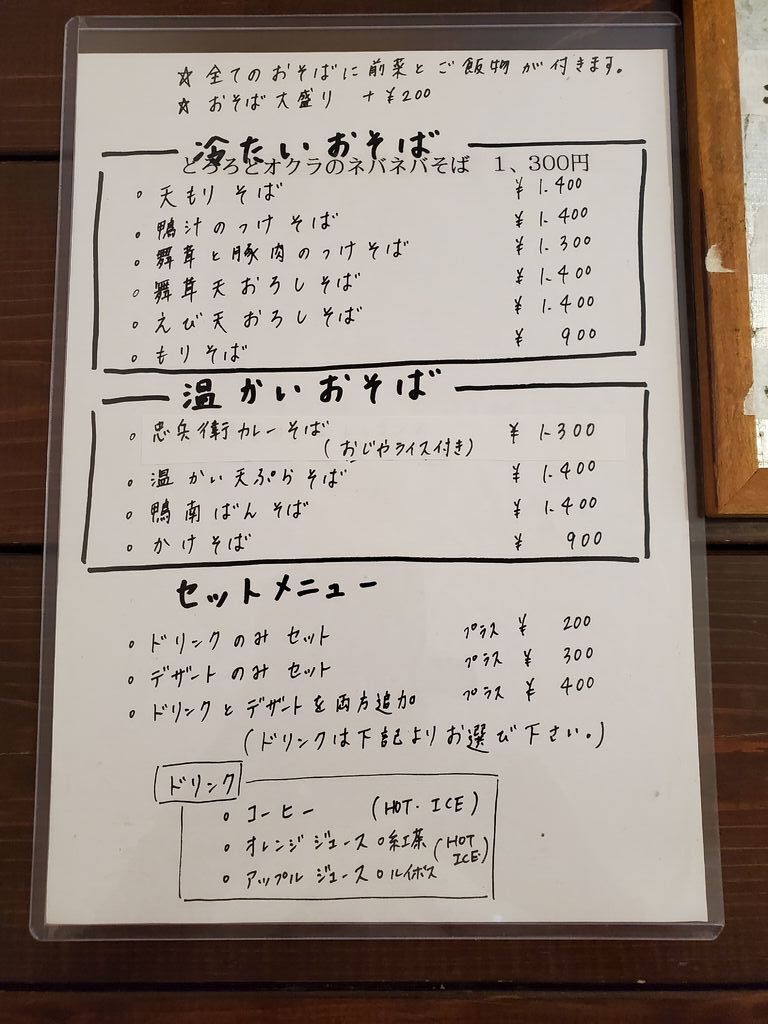 ☆ 全てのおそばに前菜とご飯物が付きます。
☆ おそば大盛り +¥200
冷たいおそば
とろろとオクラのネバネバそば 1、300円
・天もりそば ¥1.400
・鴨汁のつけそば ¥1.400
・舞茸と豚肉のつけそば ¥1.300
・舞茸天おろしそば ¥1.400
・えび天おろしそば ¥1.400
・もりそば ¥900
温かいおそば
・忠兵衛カレーそば ¥1.300
(おじやライス付き)
・温かい天ぷらそば ¥1.400
・鴨南ばんそば ¥1.400
・かけそば ¥900
セットメニュー
・ドリンクのみセット プラス ¥200
・デザートのみセット プラス ¥300
・ドリンクとデザートを両方追加 プラス ¥400
(ドリンクは下記よりお選び下さい。)
ドリンク
・コーヒー (HOT・ICE)
・オレンジジュース ・紅茶 (HOT ICE)
・アップルジュース ・ルイボス